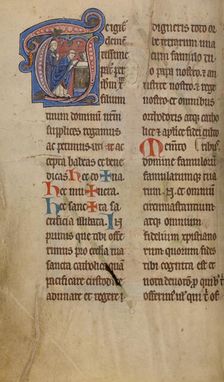 eigit̄
clem̄
tissime
pat̄ p ie
ſum x̄p̄m
filium
tuum dominum nr̄m
supplices rogamus
ac petimus uti ac
cepta habeas et bene
dicas hec do✠na
hec mu✠nera
hec sanc✠ta sa
crificia illibata. In
primis que tibi offe
rimus pro ecclia tua
sancta catholica quā
pacificare custodire
adunare et regere
digneris toto or
be terrarum una
cum famulo tuo
papa nostro .N. et
nostro .N. et
nostro et omnibus
orthodoxis atq; catho
lice & aplice fidei cul
toribus.
Memento
domine famulorū
famularumq; tuarum
.N. et omnium
circumastantium
atque omnium
fidelium xpistiano
rum quorum fides
tibi cognita est et
nota deuotio p̱ quib; t̄
offerim; ul̓ qui t̄ of